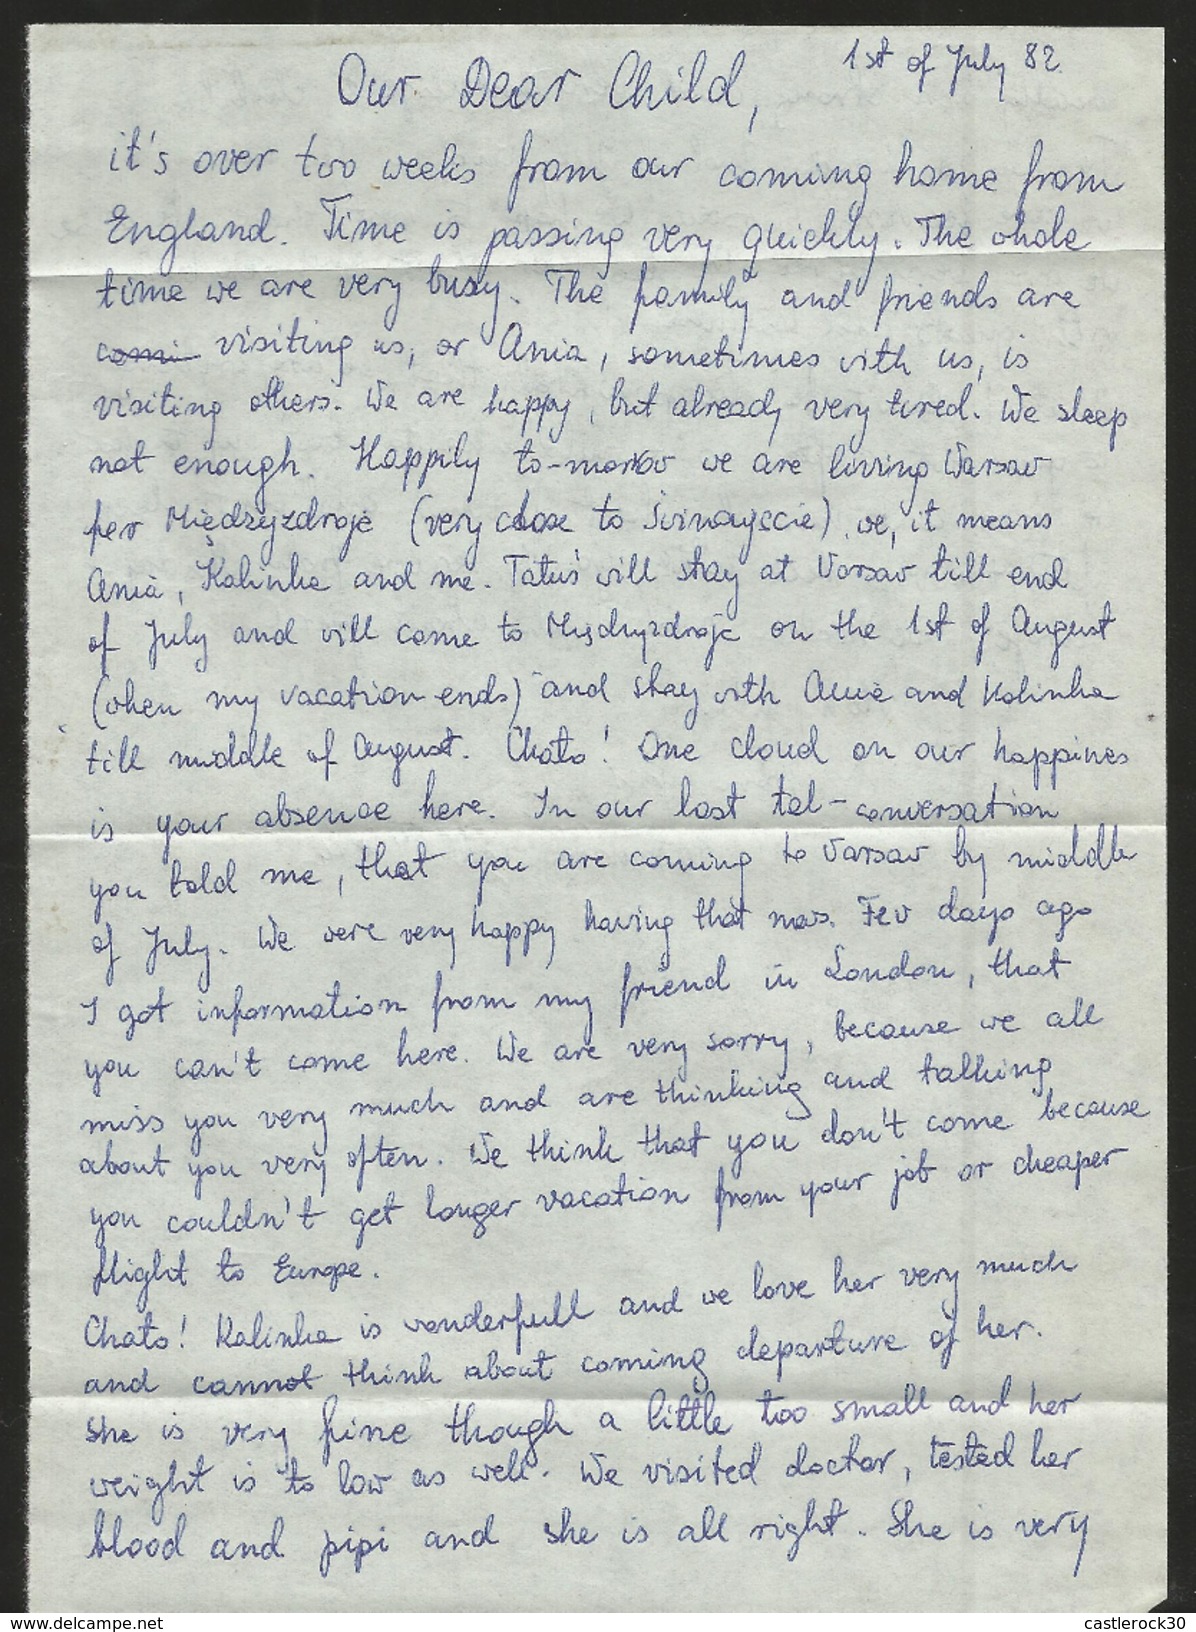 1st of July 82
Our Dear Child,
it's over two weeks from our coming home from
England. Time is passing very quickly. The whole
time we are very busy. The family and friends are
comi visiting us, or Ania, sometimes with us, is
visiting others. We are happy, but already very tired. We sleep
not enough. Happily to-morrow we are living Warsaw
for Międzyzdroje (very close to Świnoujście) we, it means
Ania, Kalinka and me. Tatuś will stay at Varsav till end
of July and vill come to Międzyzdroje on the 1st of August
(when my vacation ends) and stay with Ania and Kalinka
till middle of August. Chato! One cloud on our happines
is your absence here. In our last tel-conversation
you told me, that you are coming to Varsav by middle
of July. We were very happy having that news. Few days ago
I got information from my friend in London, that
you can't come here. We are very sorry, because we all
miss you very much and are thinking and talking
about you very often. We think that you don't come because
you couldn't get longer vacation from your job or cheaper
flight to Europe.
Chato! Kalinka is wonderfull and we love her very much
and cannot think about coming departure of her.
She is very fine though a little too small and her
weight is to low as well. We visited doctor, tested her
blood and pipi and she is all right. She is very
www.delcampe.net
castlerock30